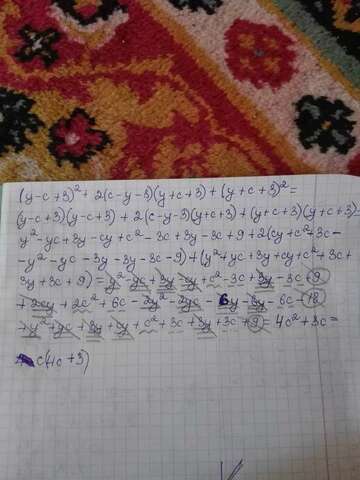 (y-c+3)²+2(c-y-3)(y+c+3)+(y+c+3)²=
(y-c+3)(y-c+3)+2(c-y-3)(y+c+3)+(y+c+3)(y+c+3)
y²-yc+3y-cy+c²-3c+3y-3c+9+2(cy+c²+3c-
-y²-yc-3y-3y-3c-9)+(y²+yc+3y+cy+c²+3c+
3y+3c+9)=y²-yc+3y-cy+c²-3c+3y-3c+9
+2cy+2c²+6c-2y²-2yc-6y-6y-6c-18
+y²+yc+3y+cy+c²+3c+3y+3c+9=4c²+3c=
c(4c+3)